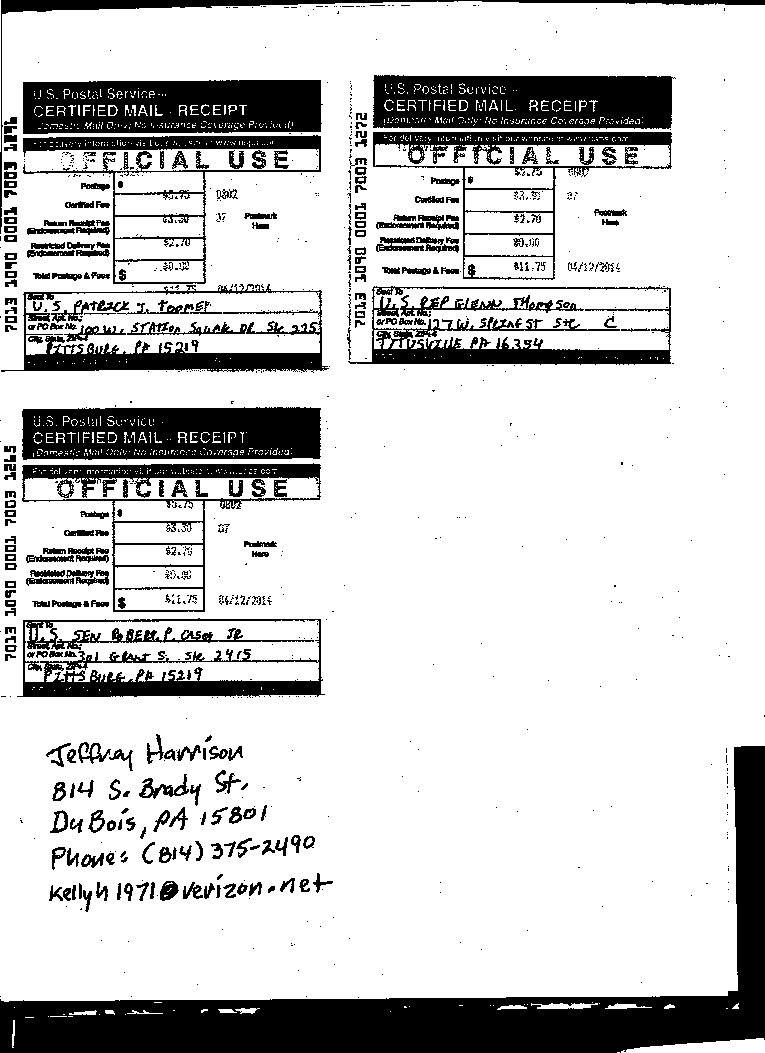 U.S. Postal Service
CERTIFIED MAIL RECEIPT
(Domestic Mail Only; No Insurance Coverage Provided)
OFFICIAL USE
Postage $ $5.75 0802
Certified Fee $3.30 07
Return Receipt Fee
(Endorsement Required) $2.70
Postmark
Here
Restricted Delivery Fee
(Endorsement Required) $0.00
Total Postage & Fees $ $11.75 04/12/2014
Sent To
U.S. PATRICK J. TOOMEY
Street, Apt. No.;
or PO Box No. 100 W. STATION SQUARE DR Ste 225
City, State, ZIP+4
PITTSBURG, PA 15219
7013 1090 0001 7003
U.S. Postal Service
CERTIFIED MAIL RECEIPT
(Domestic Mail Only; No Insurance Coverage Provided)
For delivery information visit our website at www.usps.com
OFFICIAL USE
Postage $ $5.75
Certified Fee $3.30 07
Return Receipt Fee
(Endorsement Required) $2.70
Postmark
Here
Restricted Delivery Fee
(Endorsement Required) $0.00
Total Postage & Fees $ $11.75 04/12/2014
Sent To
U.S. REP GLENN THOMPSON
Street, Apt. No.;
or PO Box No. 127 W. SPRING ST Ste C
City, State, ZIP+4
TITUSVILLE PA 16354
7013 1090 0001 7003
U.S. Postal Service
CERTIFIED MAIL RECEIPT
(Domestic Mail Only; No Insurance Coverage Provided)
For delivery information visit our website at www.usps.com
OFFICIAL USE
Postage $ $5.75 0802
Certified Fee $3.30 07
Return Receipt Fee
(Endorsement Required) $2.70
Postmark
Here
Restricted Delivery Fee
(Endorsement Required) $0.00
Total Postage & Fees $ $11.75 04/12/2014
Sent To
U.S. SEN ROBERT. P. CASEY JR
Street, Apt. No.;
or PO Box No. 301 GRANT S. Ste 2415
City, State, ZIP+4
PITTSBURG, PA 15219
7013 1090 0001 7003 1265
Jeffrey Harrison
814 S. Brady St.
DuBois, PA 15801
Phone: (814) 375-2490
Kellyh1971@verizon.net